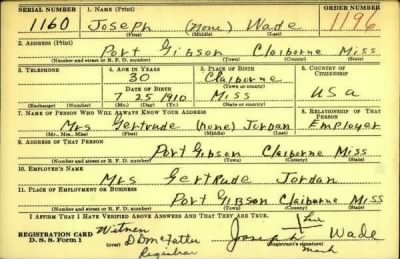 SERIAL NUMBER 1. NAME (Print) ORDER NUMBER
1160 Joseph (none) Wade 1196
(First) (Middle) (Last)
2. ADDRESS (Print)
Port Gibson Claiborne Miss
(Number and street or R. F. D. number) (Town) (County) (State)
3. TELEPHONE 4. AGE IN YEARS 5. PLACE OF BIRTH 6. COUNTRY OF CITIZENSHIP
30 Claiborne
DATE OF BIRTH (Town or county)
7 25 1910 Miss USA
(Exchange) (Number) (Mo.) (Day) (Yr.) (State or country)
7. NAME OF PERSON WHO WILL ALWAYS KNOW YOUR ADDRESS 8. RELATIONSHIP OF THAT PERSON
Mrs Gertrude (none) Jordan Employer
(Mr. Mrs. Miss) (First) (Middle) (Last)
9. ADDRESS OF THAT PERSON
Port Gibson Claiborne Miss
(Number and street or R. F. D. number) (Town) (County) (State)
10. EMPLOYER'S NAME
Mrs Gertrude Jordan
11. PLACE OF EMPLOYMENT OR BUSINESS
Port Gibson Claiborne Miss
(Number and street or R. F. D. number) (Town) (County) (State)
I AFFIRM THAT I HAVE VERIFIED ABOVE ANSWERS AND THAT THEY ARE TRUE.
REGISTRATION CARD Witness his
D. S. S. Form 1 (over) Joseph X Wade
Registrar (Registrant's signature) mark